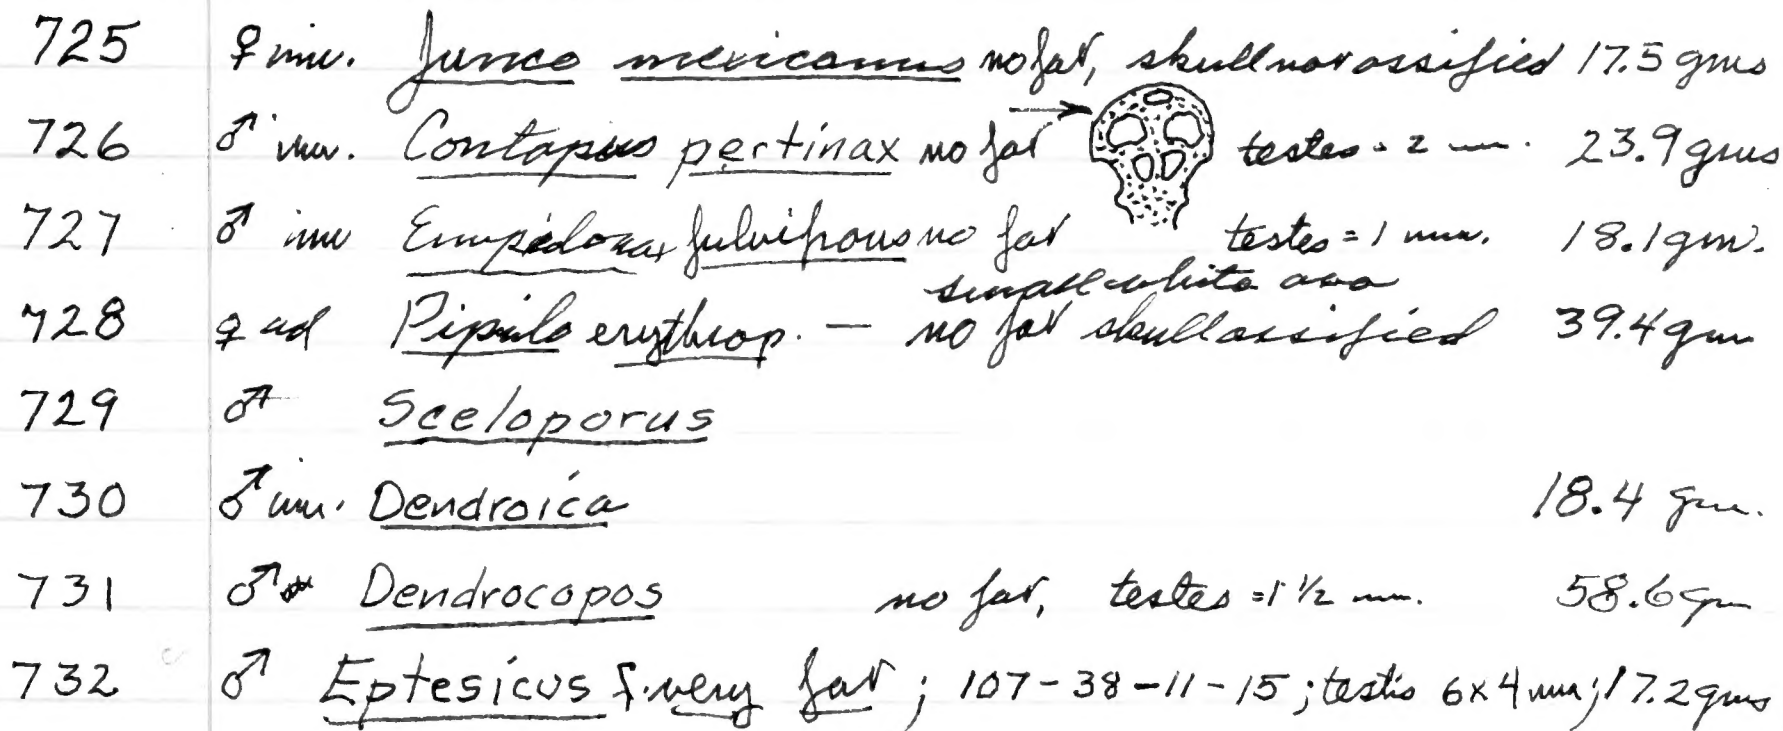 725 ♀ imm. Junco mexicanus no fat, skull not ossified 17.5 gms
726 ♂ imm. Contopus pertinax no fat testes = 2 mm. 23.9 gms
727 ♂ imm Empidonax fulvifrons no fat testes = 1 mm. 18.1 gm.
small white ova
728 ♀ ad Pipilo erythrop. — no fat skull ossified 39.4 gm
729 ♂ Sceloporus
730 ♂ imm. Dendroica 18.4 gm.
731 ♂ Dendrocopos no fat, testes = 1 1/2 mm. 58.6 gm
732 ♂ Eptesicus f. very fat ; 107-38-11-15 ; testis 6x4 mm ; 17.2 gms